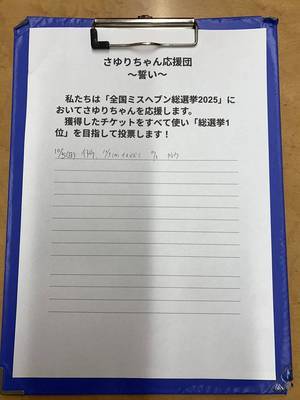 さゆりちゃん応援団
～誓い～
私たちは「全国ミスヘブン総選挙2025」に
おいてさゆりちゃんを応援します。
獲得したチケットをすべて使い「総選挙1
位」を目指して投票します！